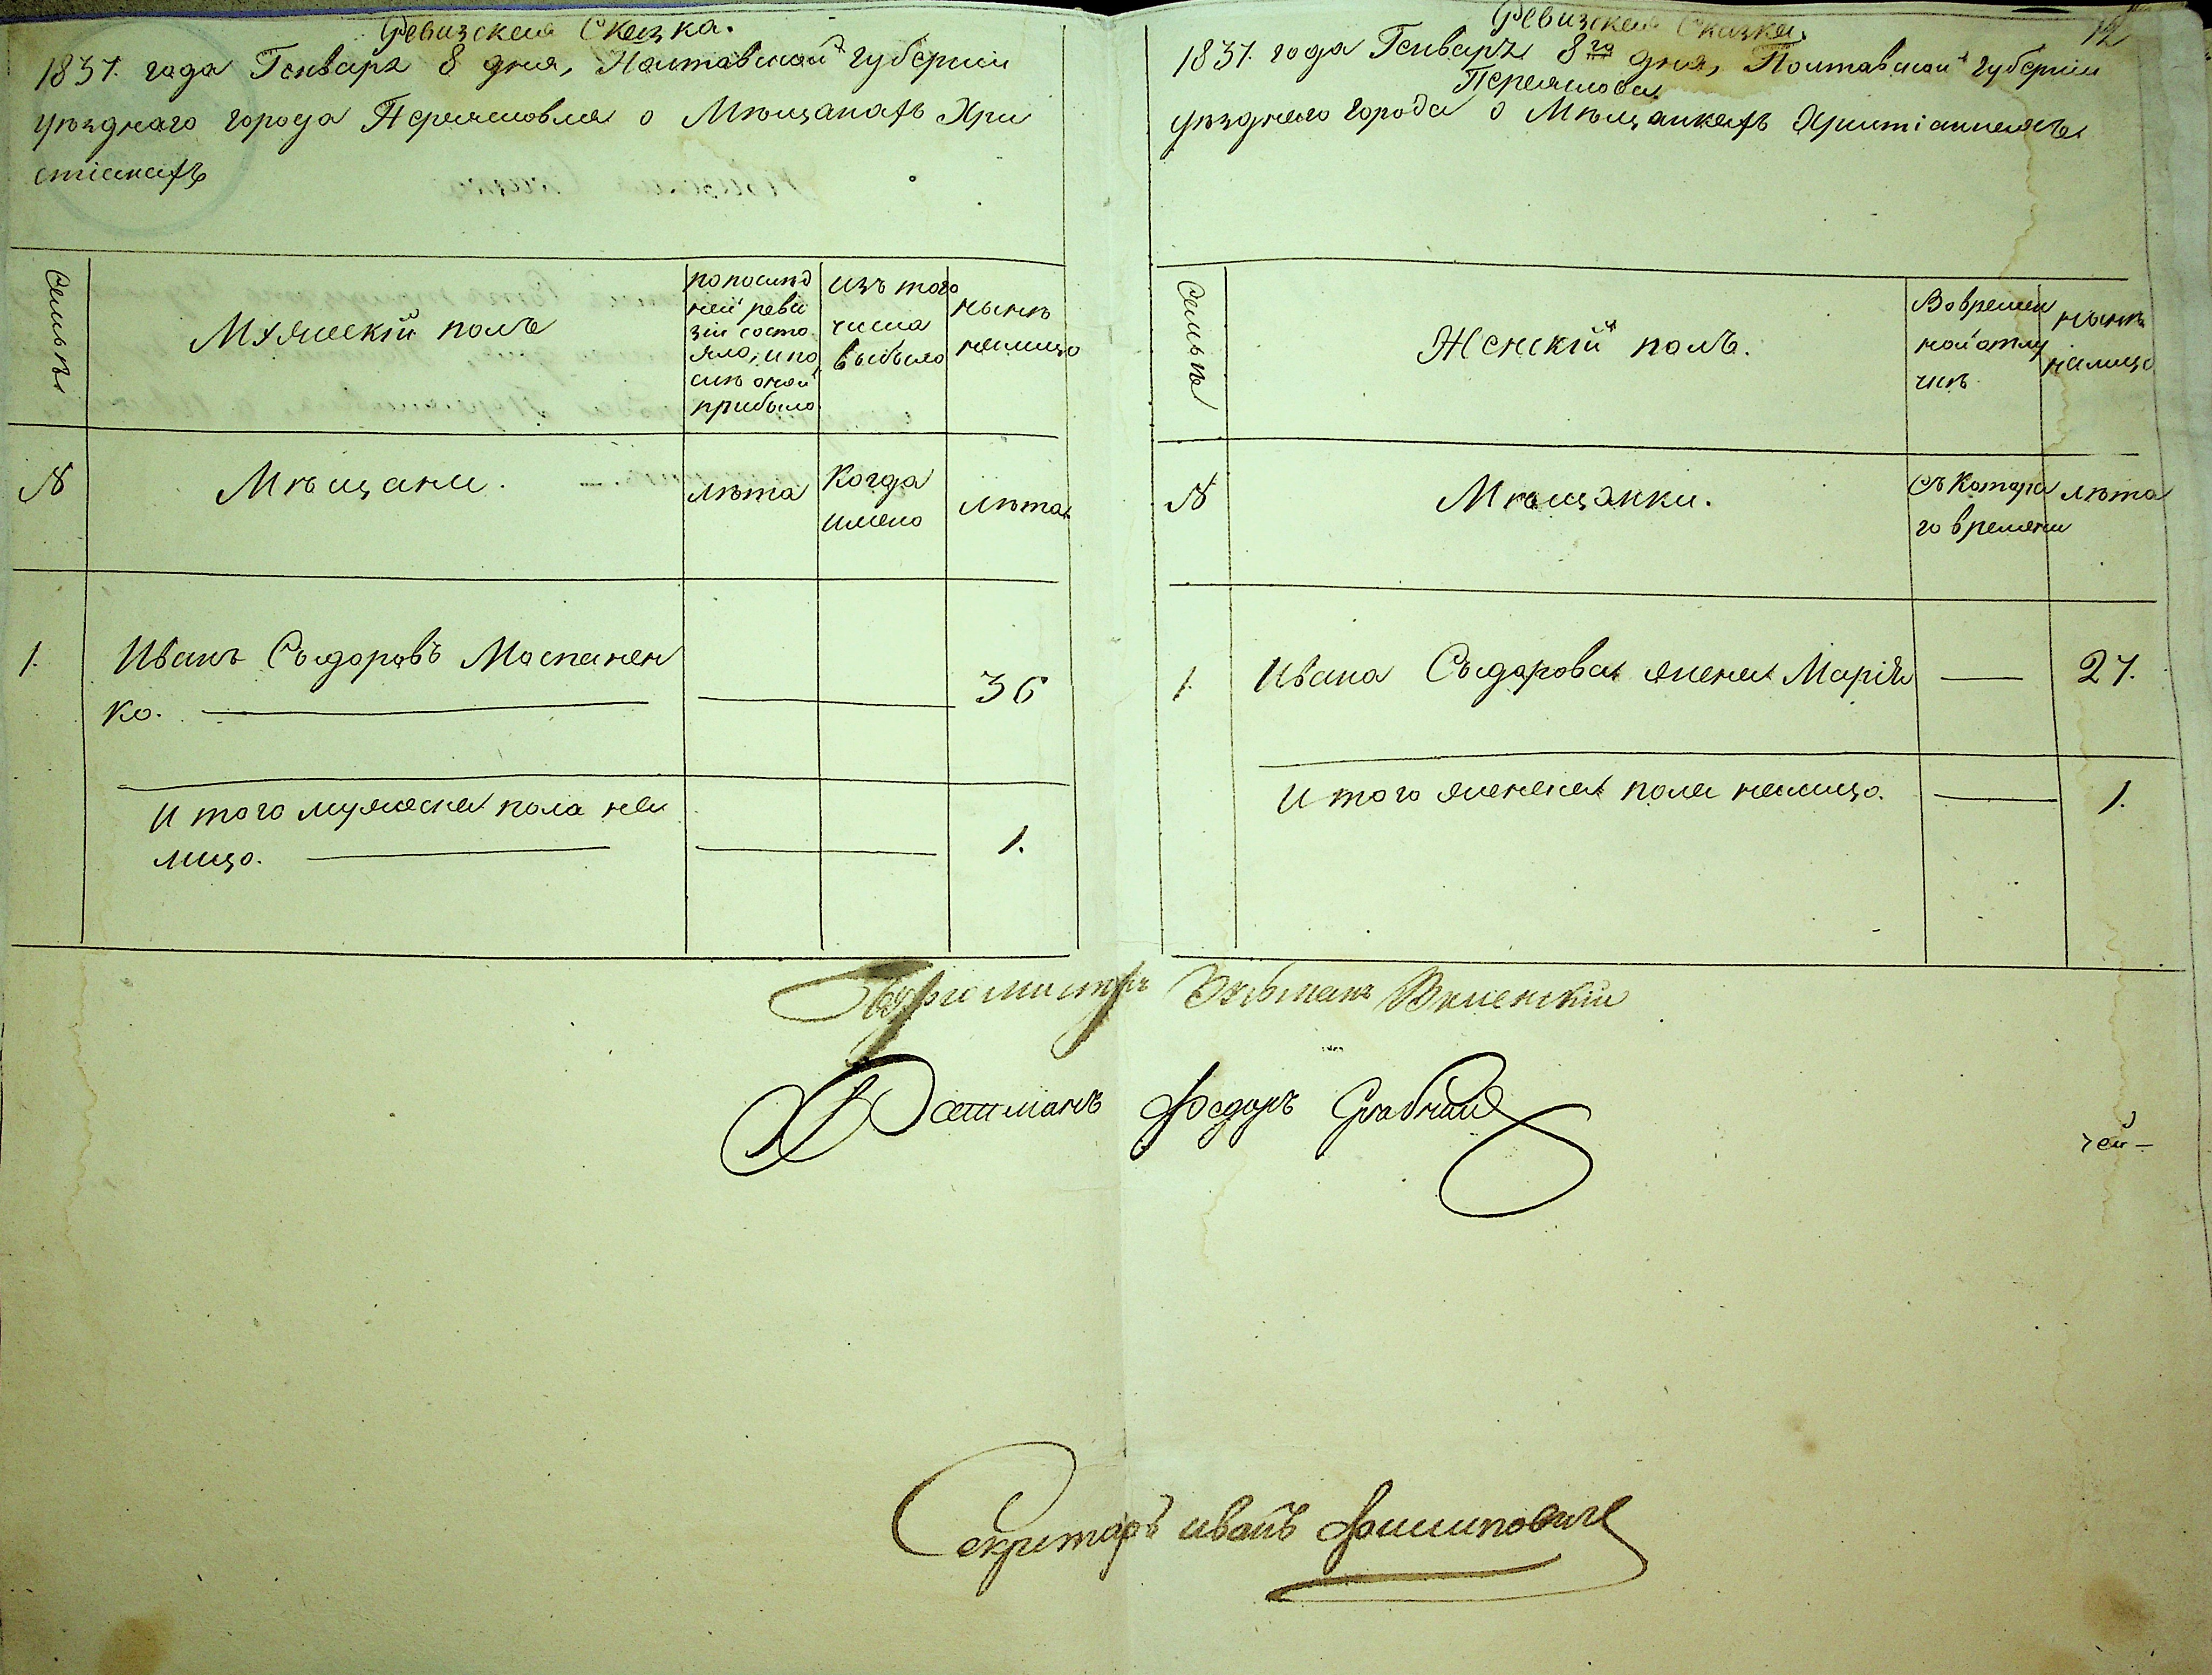 Ревизская Сказка.
1837. года Генваря 8 дня, Полтавской губернии
уѣзднаго города Переяславля о Мѣщанахъ Хри
стіанахъ
Семьи
Мужескій полъ
по послѣд
ней реви
зіи состо
яло, и по
слѣ оной
прибыло.
изъ того
числа
выбыло
нынѣ
налицо
№
Мѣщани.
лѣта
Когда
имено
лѣта
1.
Иванъ Сыдоровъ Маспанен
ко.
36
И того мужеска пола на
лицо.
1.
Ревизская Сказка.
12
1837. года Генваря 8го дня, Полтавской губерніи
Переяслова
уѣзднаго города о Мѣщанкахъ Христіанкахъ
Семьи
Женскій полъ.
Во времен
ной отлу
чкѣ.
нынѣ
налицо
№
Мѣщанки.
съ котора
го времени
лѣта
1
Ивана Сыдорова жена Марія
27.
И того женска пола налицо.
1.
Бургомистръ
Ратманъ Федоръ
чей
Секретарь иванъ Филиповичъ